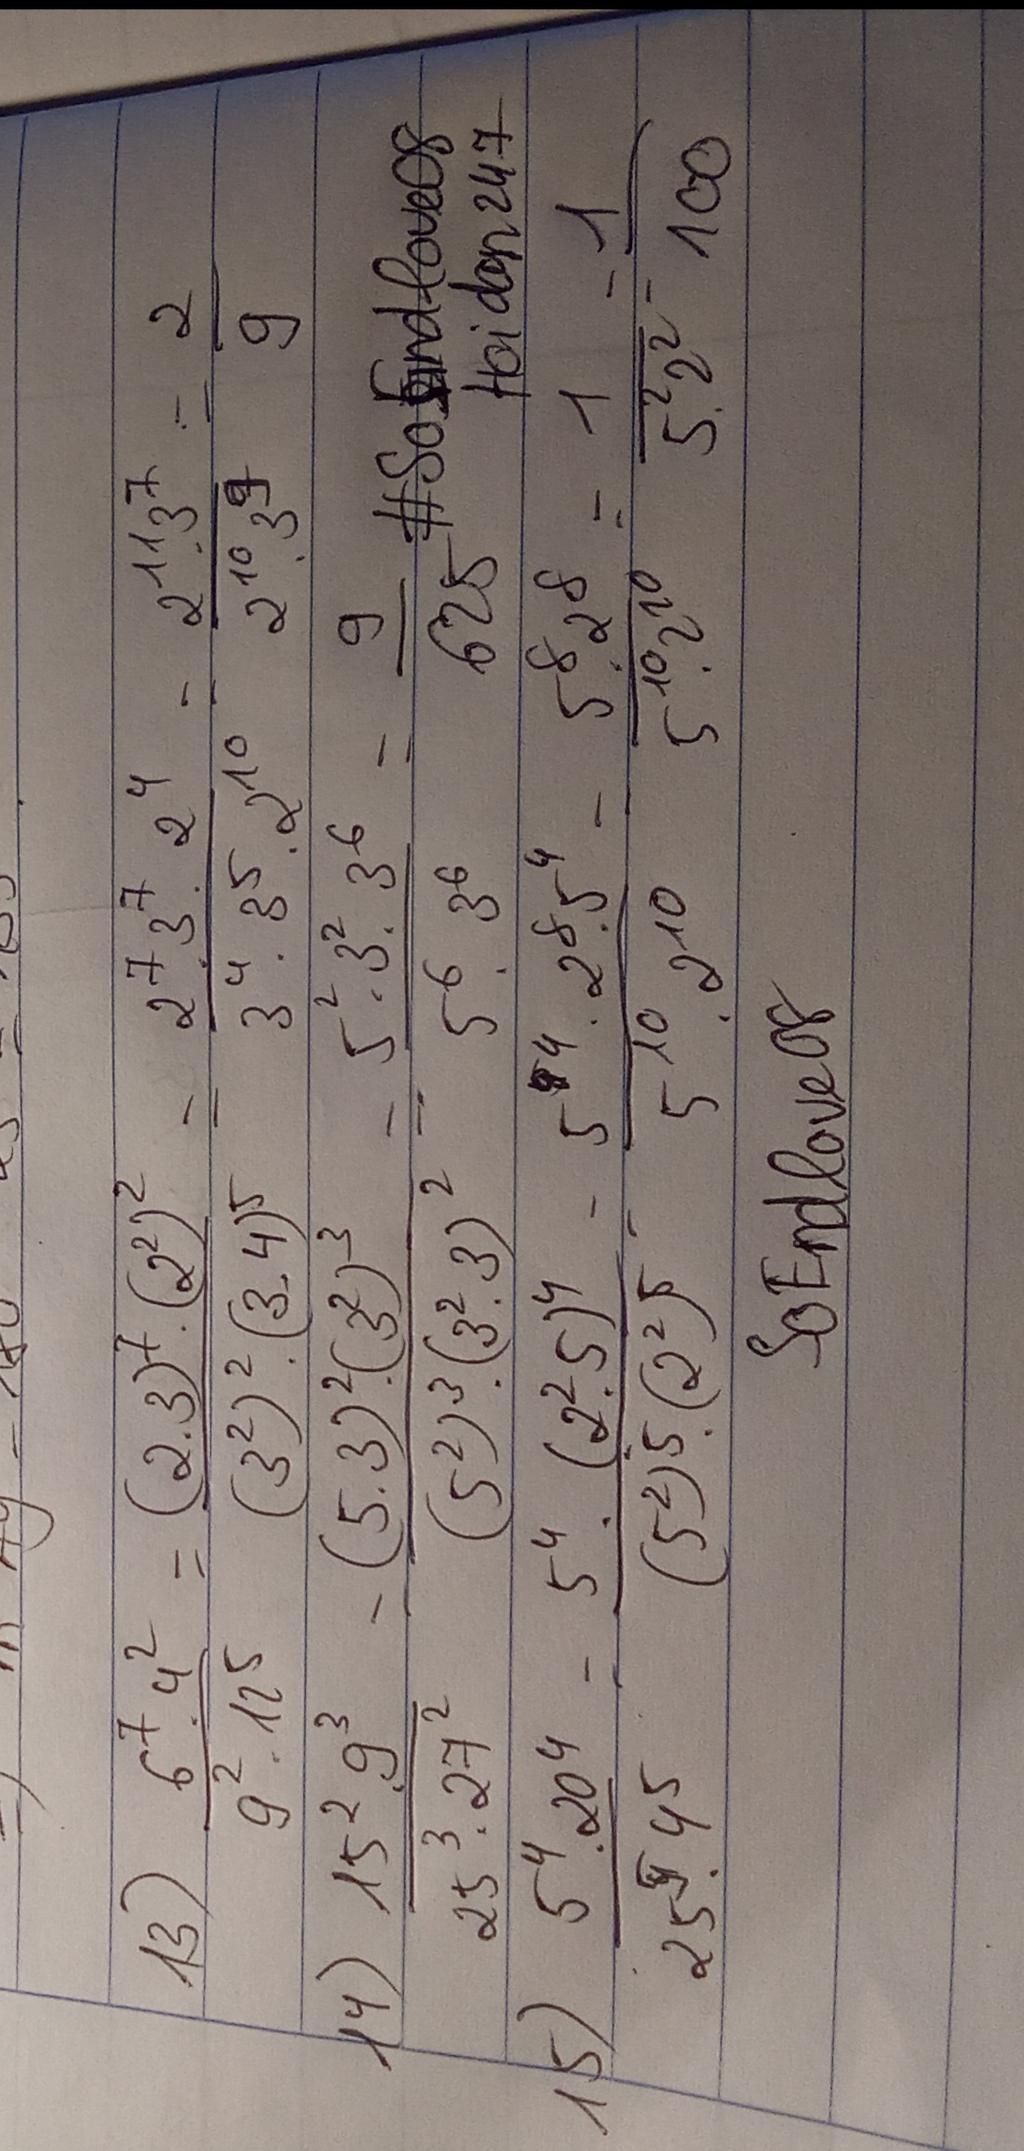 13) 6^7.4^2 / 9^2.12^5 = (2.3)^7.(2^2)^2 / (3^2)^2.(3.4)^5 = 2^7.3^7.2^4 / 3^4.3^5.2^10 = 2^11.3^7 / 2^10.3^9 = 2 / 9
14) 15^2.9^3 / 25^3.27^2 = (5.3)^2.(3^2)^3 / (5^2)^3.(3^2.3)^2 = 5^2.3^2.3^6 / 5^6.3^6 = 9 / 625
#SoEndlove08
Hoidap247
15) 5^4.20^4 / 25^5.4^5 = 5^4.(2^2.5)^4 / (5^2)^5.(2^2)^5 = 5^4.2^8.5^4 / 5^10.2^10 = 5^8.2^8 / 5^10.2^10 = 1 / 5^2.2^2 = 1 / 100
SoEndlove08